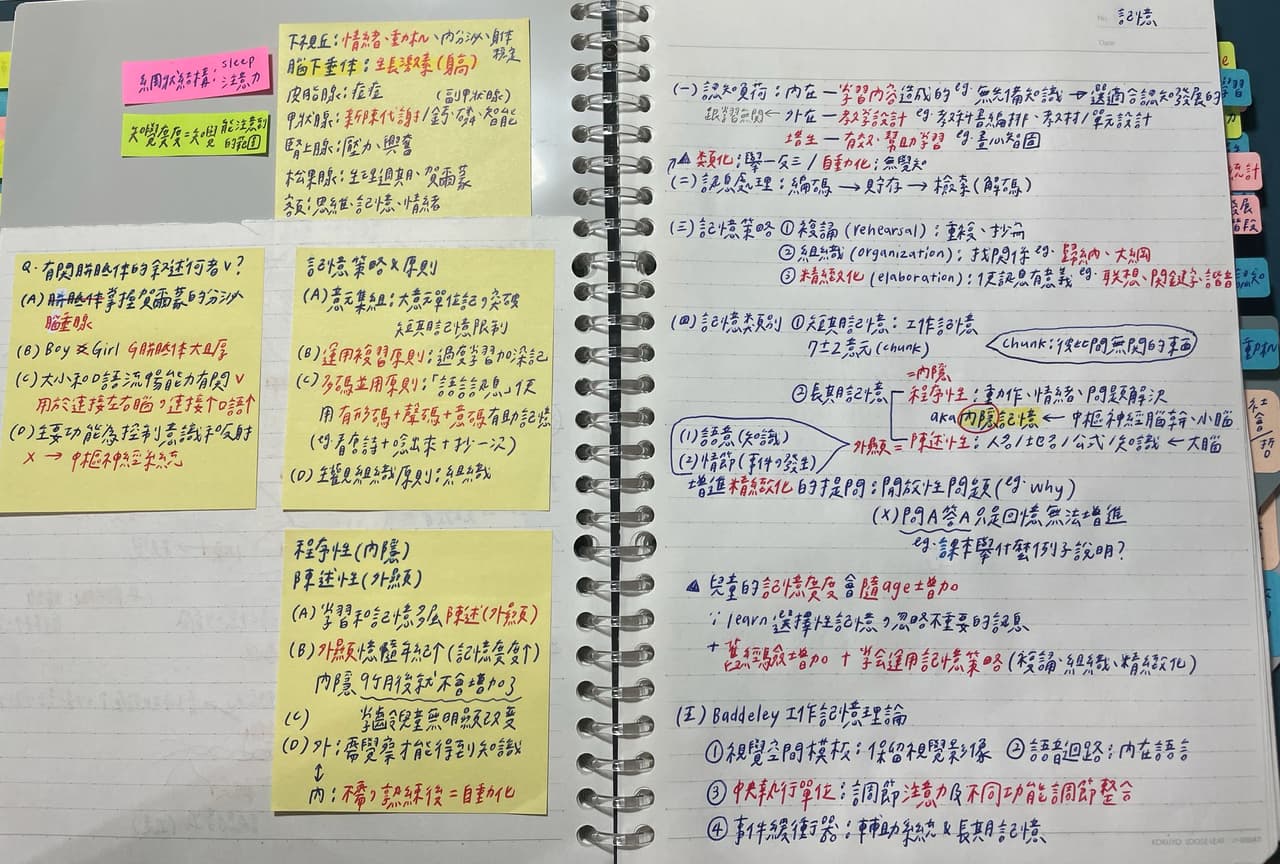 網狀結構：sleep
注意力
知覺廣度=知覺能注意到的範圍
下視丘：情緒、動机、內分泌、身体穩定
腦下垂体：生長激素(身高)
皮脂腺：痘痘 (副甲狀腺)
甲狀腺：新陳代謝/鈣、磷、智能
腎上腺：壓力、興奮
松果腺：生理週期、賀爾蒙
額：思維、記憶、情緒
Q. 有関胼胝体的敘述何者v?
(A) 胼胝体掌握賀爾蒙的分泌
腦垂腺
(B) Boy Girl 胼胝体大且厚
(C) 大小和口語流暢能力有関v
用於連接左右腦，連接↑口語↑
(D) 主要功能為控制意識和反射
x → 中樞神經系統
記憶策略&原則
(A) 意元集組：大意元單位記，突破
短期記憶限制
(B) 運用複習原則：過度學習加深記
(C) 多碼並用原則：「語言訊息」使
用有形碼+聲碼+意碼有助記憶
(eg.看唐詩+唸出來+抄一次)
(D) 主觀組織原則：組織
程序性(內隱)
陳述性(外顯)
(A) 學習和記憶多屬陳述(外顯)
(B) 外顯憶隨年紀↑(記憶廣度↑)
內隱 9个月後就不會增加了
(C) 學齡兒童無明顯改變
(D) 外：需覺察才能得到知識
↕
內：不需，熟練後=自動化
No. 記憶
Date
(一) 認知負荷：內在—學習內容造成的 eg.無先備知識→選適合認知發展的
跟學習無関← 外在—教學設計 eg.教科書編排、教材/單元設計
增生—有效、幫助學習 eg.畫心智圖
▲類化：舉一反三/自動化：無覺知
(二) 訊息處理：編碼→貯存→檢索(解碼)
(三) 記憶策略 ①複誦(rehearsal)：重複、抄寫
②組織(organization)：找関係 eg.歸納、大綱
③精緻化(elaboration)：使訊息有意義 eg.聯想、関鍵字、諧音
(四) 記憶類別 ①短期記憶：工作記憶
7±2意元(chunk)
chunk：彼此間無関的東西
②長期記憶
=內隱
程序性：動作、情緒、問題解決
aka內隱記憶 ← 中樞神經腦幹、小腦
外顯=陳述性：人名/地名/公式/知識 ← 大腦
(1) 語意(知識)
(2) 情節(事件の發生)
增進精緻化的提問：開放性問題(eg.why)
(x) 問A答A只是回憶無法增進
eg.課本舉什麼例子說明?
▲兒童的記憶廣度會隨age±增加
∵learn選擇性記憶，忽略不重要的訊息
+舊經驗增加+學会運用記憶策略(複誦、組織、精緻化)
(五) Baddeley工作記憶理論
①視覺空間模板：保留視覺影像 ②語音迴路：內在語言
③中央執行單位：調節注意力及不同功能調節整合
④事件緩衝器：輔助系統&長期記憶
KOKUYO LOOSE-LEAF
學習
統計
發展
階段
認知
動机
社会/哲